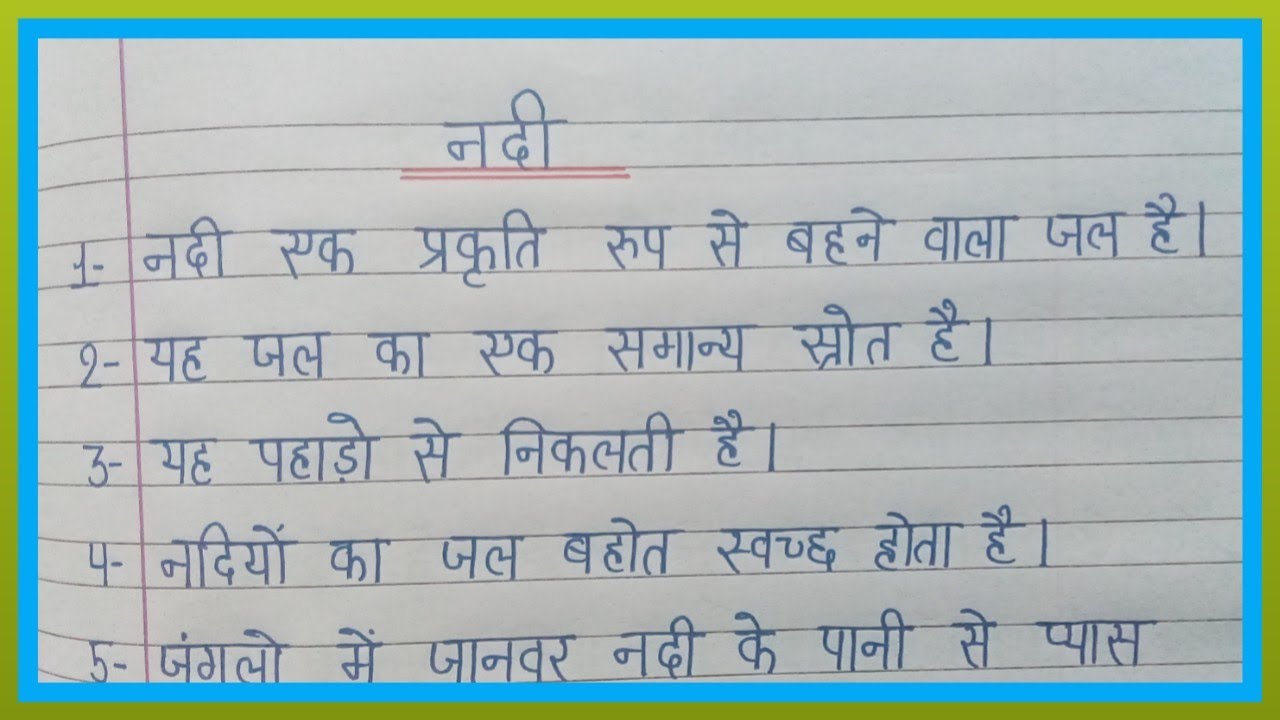 नदी
1- नदी एक प्रकृति रुप से बहने वाला जल है।
2- यह जल का एक समान्य स्रोत है।
3- यह पहाड़ो से निकलती है।
4- नदियों का जल बहोत स्वच्छ होता है।
5- जंगलो में जानवर नदी के पानी से प्यास